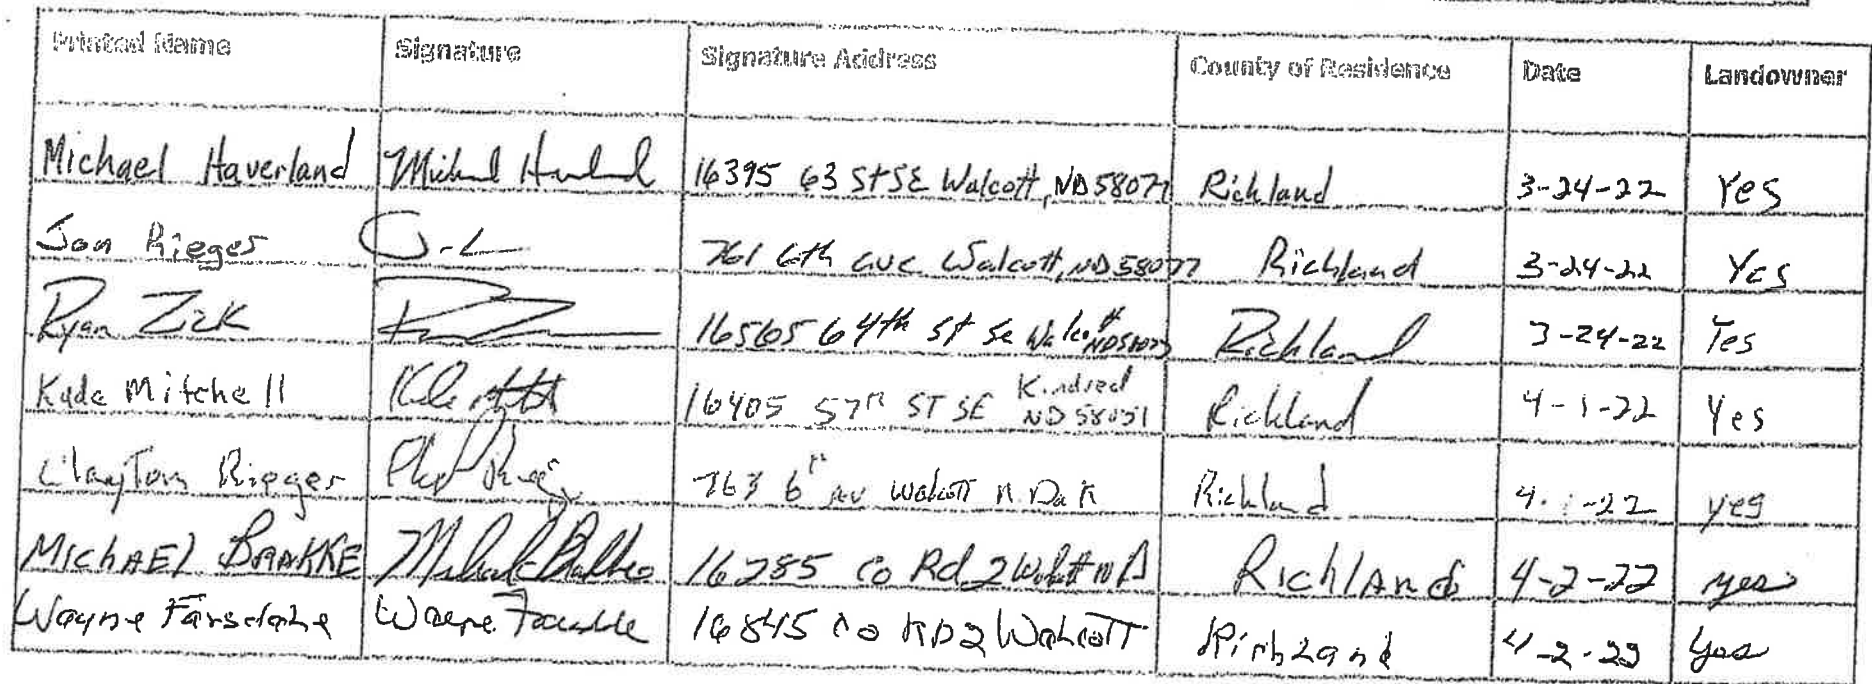 Printed Name Signature Signature Address County of Residence Date Landowner
Michael Haverland Michael Haverland 16395 63 St SE Walcott, ND 58077 Richland 3-24-22 Yes
Jon Rieger 761 6th ave Walcott, ND 58077 Richland 3-24-22 Yes
Ryan Zick 16565 64th St Se Walcott ND 58077 Richland 3-24-22 Yes
Kyde Mitchell 16405 57th ST SE Kindred ND 58051 Richland 4-1-22 Yes
Clayton Rieger 763 6th Av Walcott N. Dak Richland 4-1-22 yes
MICHAEL BRAKKE 16285 Co Rd 2 Walcott ND RichLAnd 4-2-22 yes
Wayne Wayne 16845 Co RD 2 Walcott Richland 4-2-22 Yes